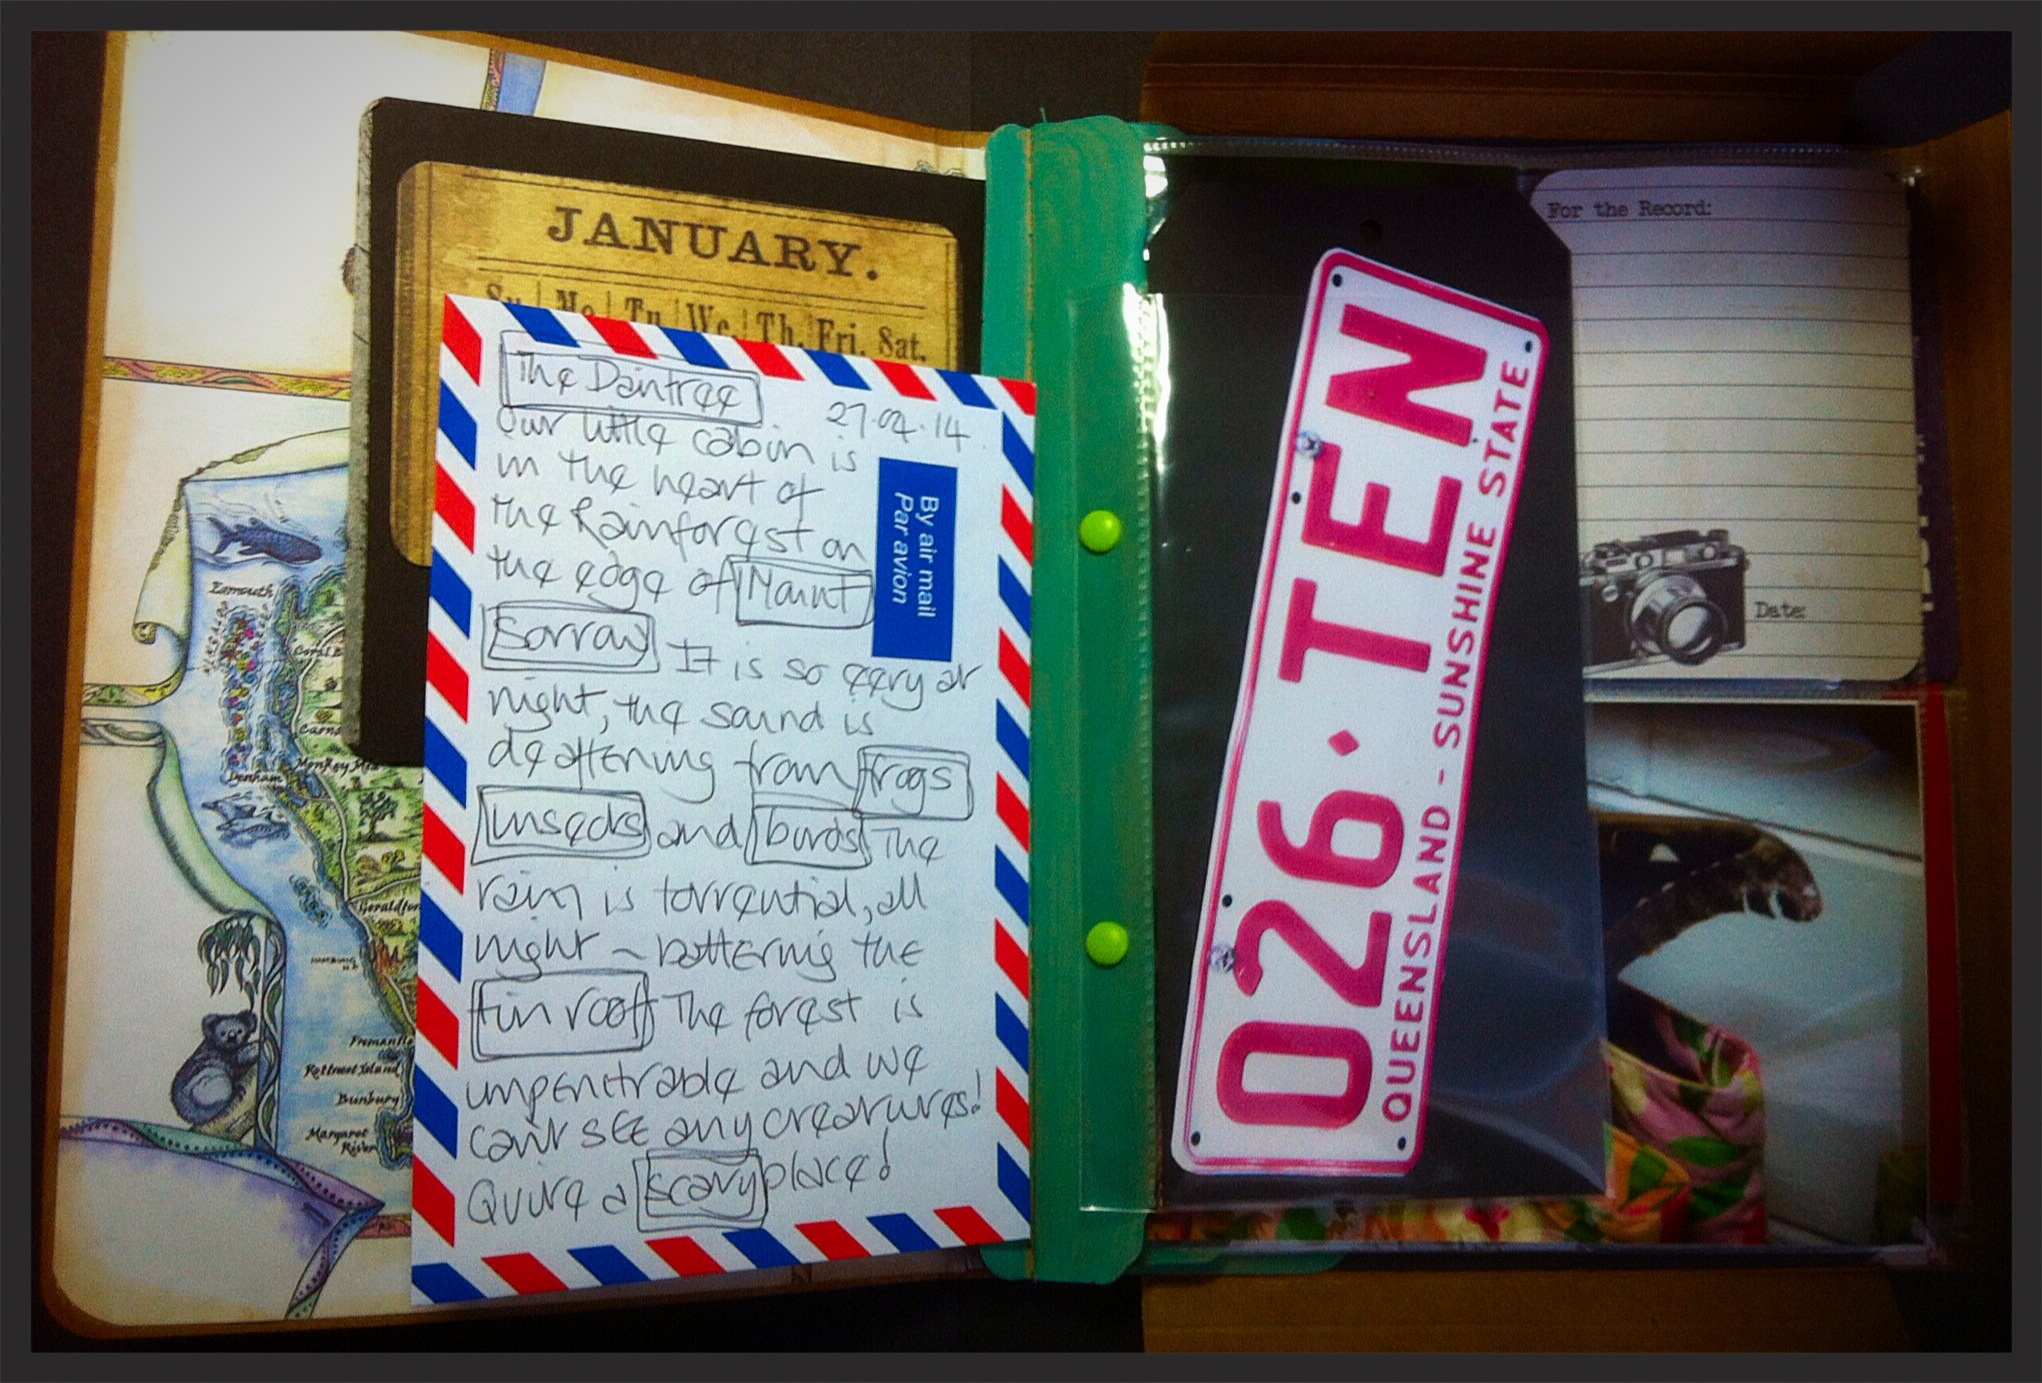 JANUARY.
Su Mo Tu We. Th. Fri. Sat.
The Daintree
27.02.14.
Our little cabin is
in the heart of
the Rainforest on
the edge of Mount
Sorrow It is so eery at
night, the sound is
deaftening from frogs
insects and birds The
rain is torrential, all
night ~ battering the
tin roof The forest is
impenitrable and we
can't see any creatures!
Quite a scary place!
By air mail
Par avion
Exmouth
Coral B
Carna
Monkey Mia
Denham
Geraldton
Fremantle
Rottnest Island
Bunbury
Margaret
River
026·TEN
QUEENSLAND - SUNSHINE STATE
For the Record:
Date: